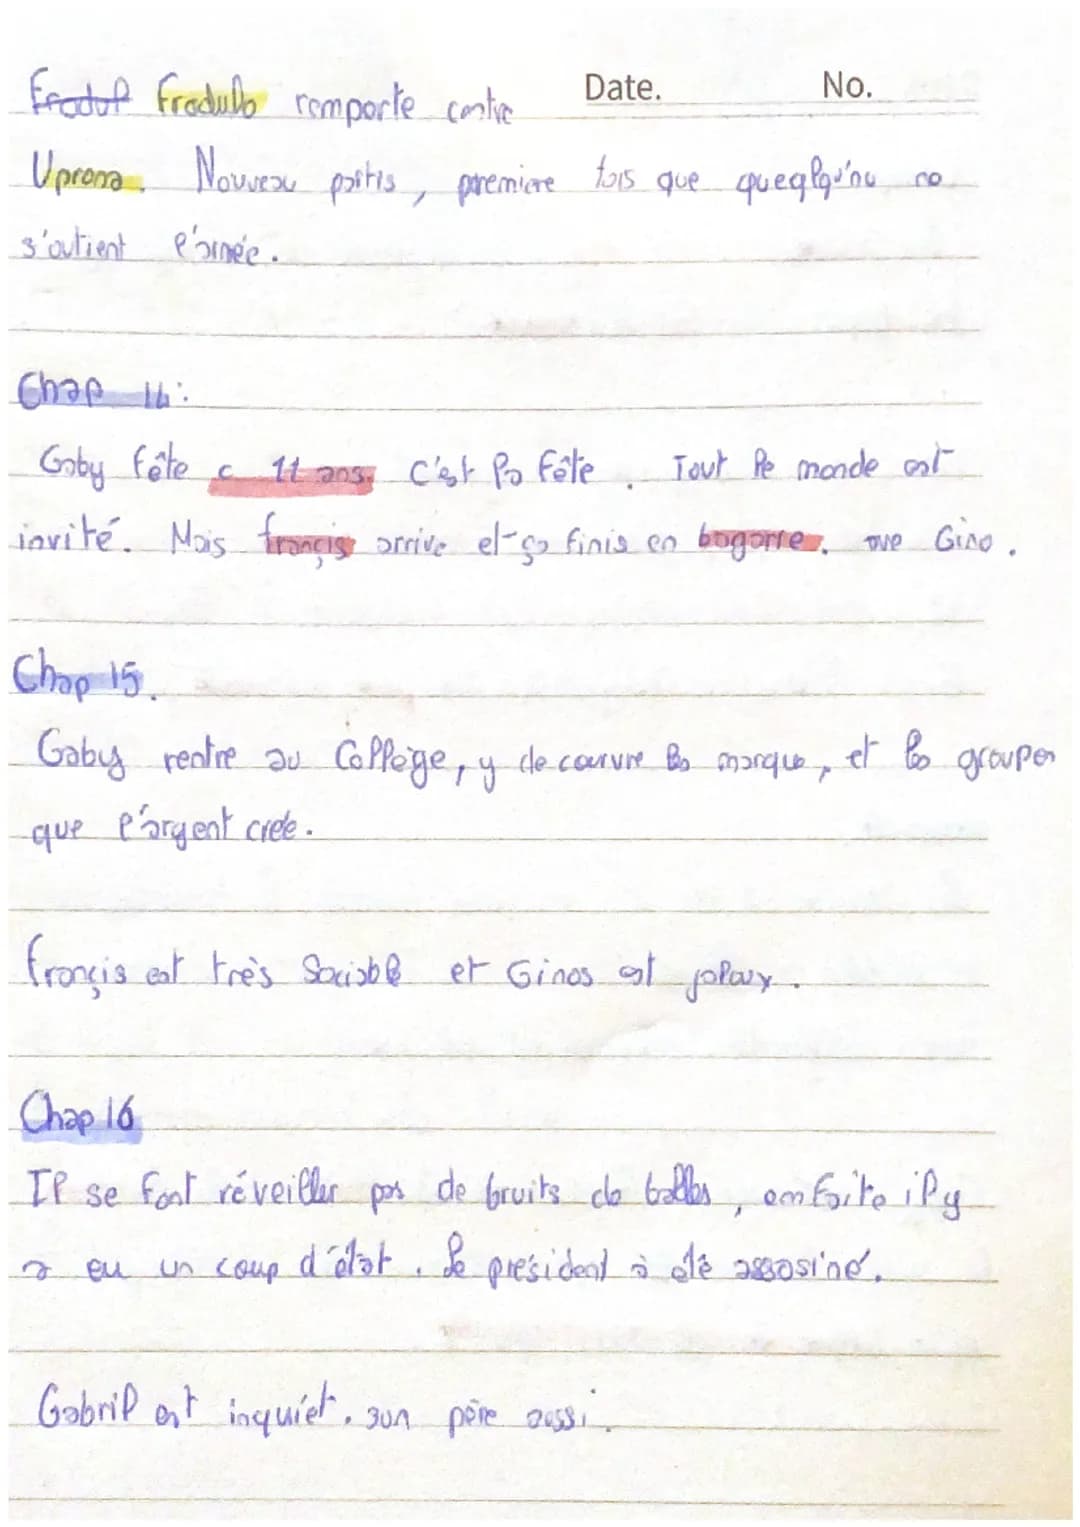 Date. No.
Fradul Fradulo remporte contre
Uprona. Nouveau paitis, premiere fois que queqlqu'nu no
s'outient l'armée.
Chap 14:
Gaby fête c 11 ans. C'est la fête. Tout le monde est
invité. Mais françis arrive et ça finis en bagarre. ave Gino.
Chap 15.
Gaby rentre au Collège, y decouvre les marque, et les groupes
que l'argent crée.
françis est très Sociable et Ginos est jaloux.
Chap 16
Il se font réveiller pas de bruits de balles, en faite il y
a eu un coup d'état. Le président à été assasiné.
Gabril est inquiet. son père aussi.